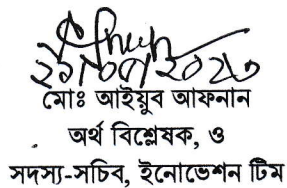 মোঃ আইয়ুব আফনান
অর্থ বিশ্লেষক, ও
সদস্য-সচিব, ইনোভেশন টিম